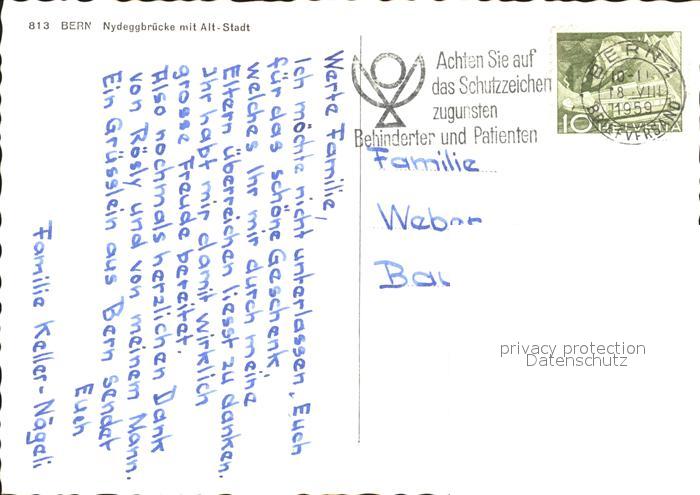 813 BERN Nydeggbrücke mit Alt-Stadt
Werte Familie,
Ich möchte nicht unterlassen, Euch
für das schöne Geschenk,
welches Ihr mir durch meine
Eltern überreichen liesst zu danken.
Ihr habt mir damit wirklich
grosse Freude bereitet.
Also nochmals herzlichen Dank
von Rösly und von meinem Mann.
Ein Grüsslein aus Bern sendet
Euch
Familie Keller-Nägeli
Achten Sie auf
das Schutzzeichen
zugunsten
Behinderter und Patienten
BERN 1
10-11
18.VIII
1959
BRIEFVERSAND
10
Familie
Weber
privacy protection
Datenschutz